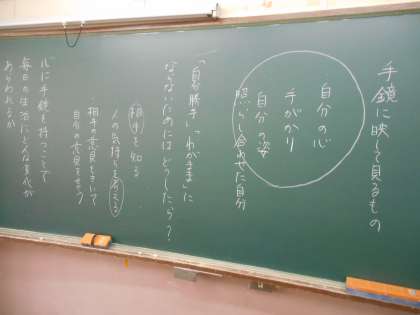 手鏡に映して見るもの
自分の心
手がかり
自分の姿
照らし合せた自分
「自分勝手」「わがまま」に
ならないためにはどうしたら?
相手を知る
人の気持ちを考える。
・相手の意見をきいて
自分の意見をもつ
心に手鏡を持つことで
毎日の生活にどんな変化が
あらわれるか